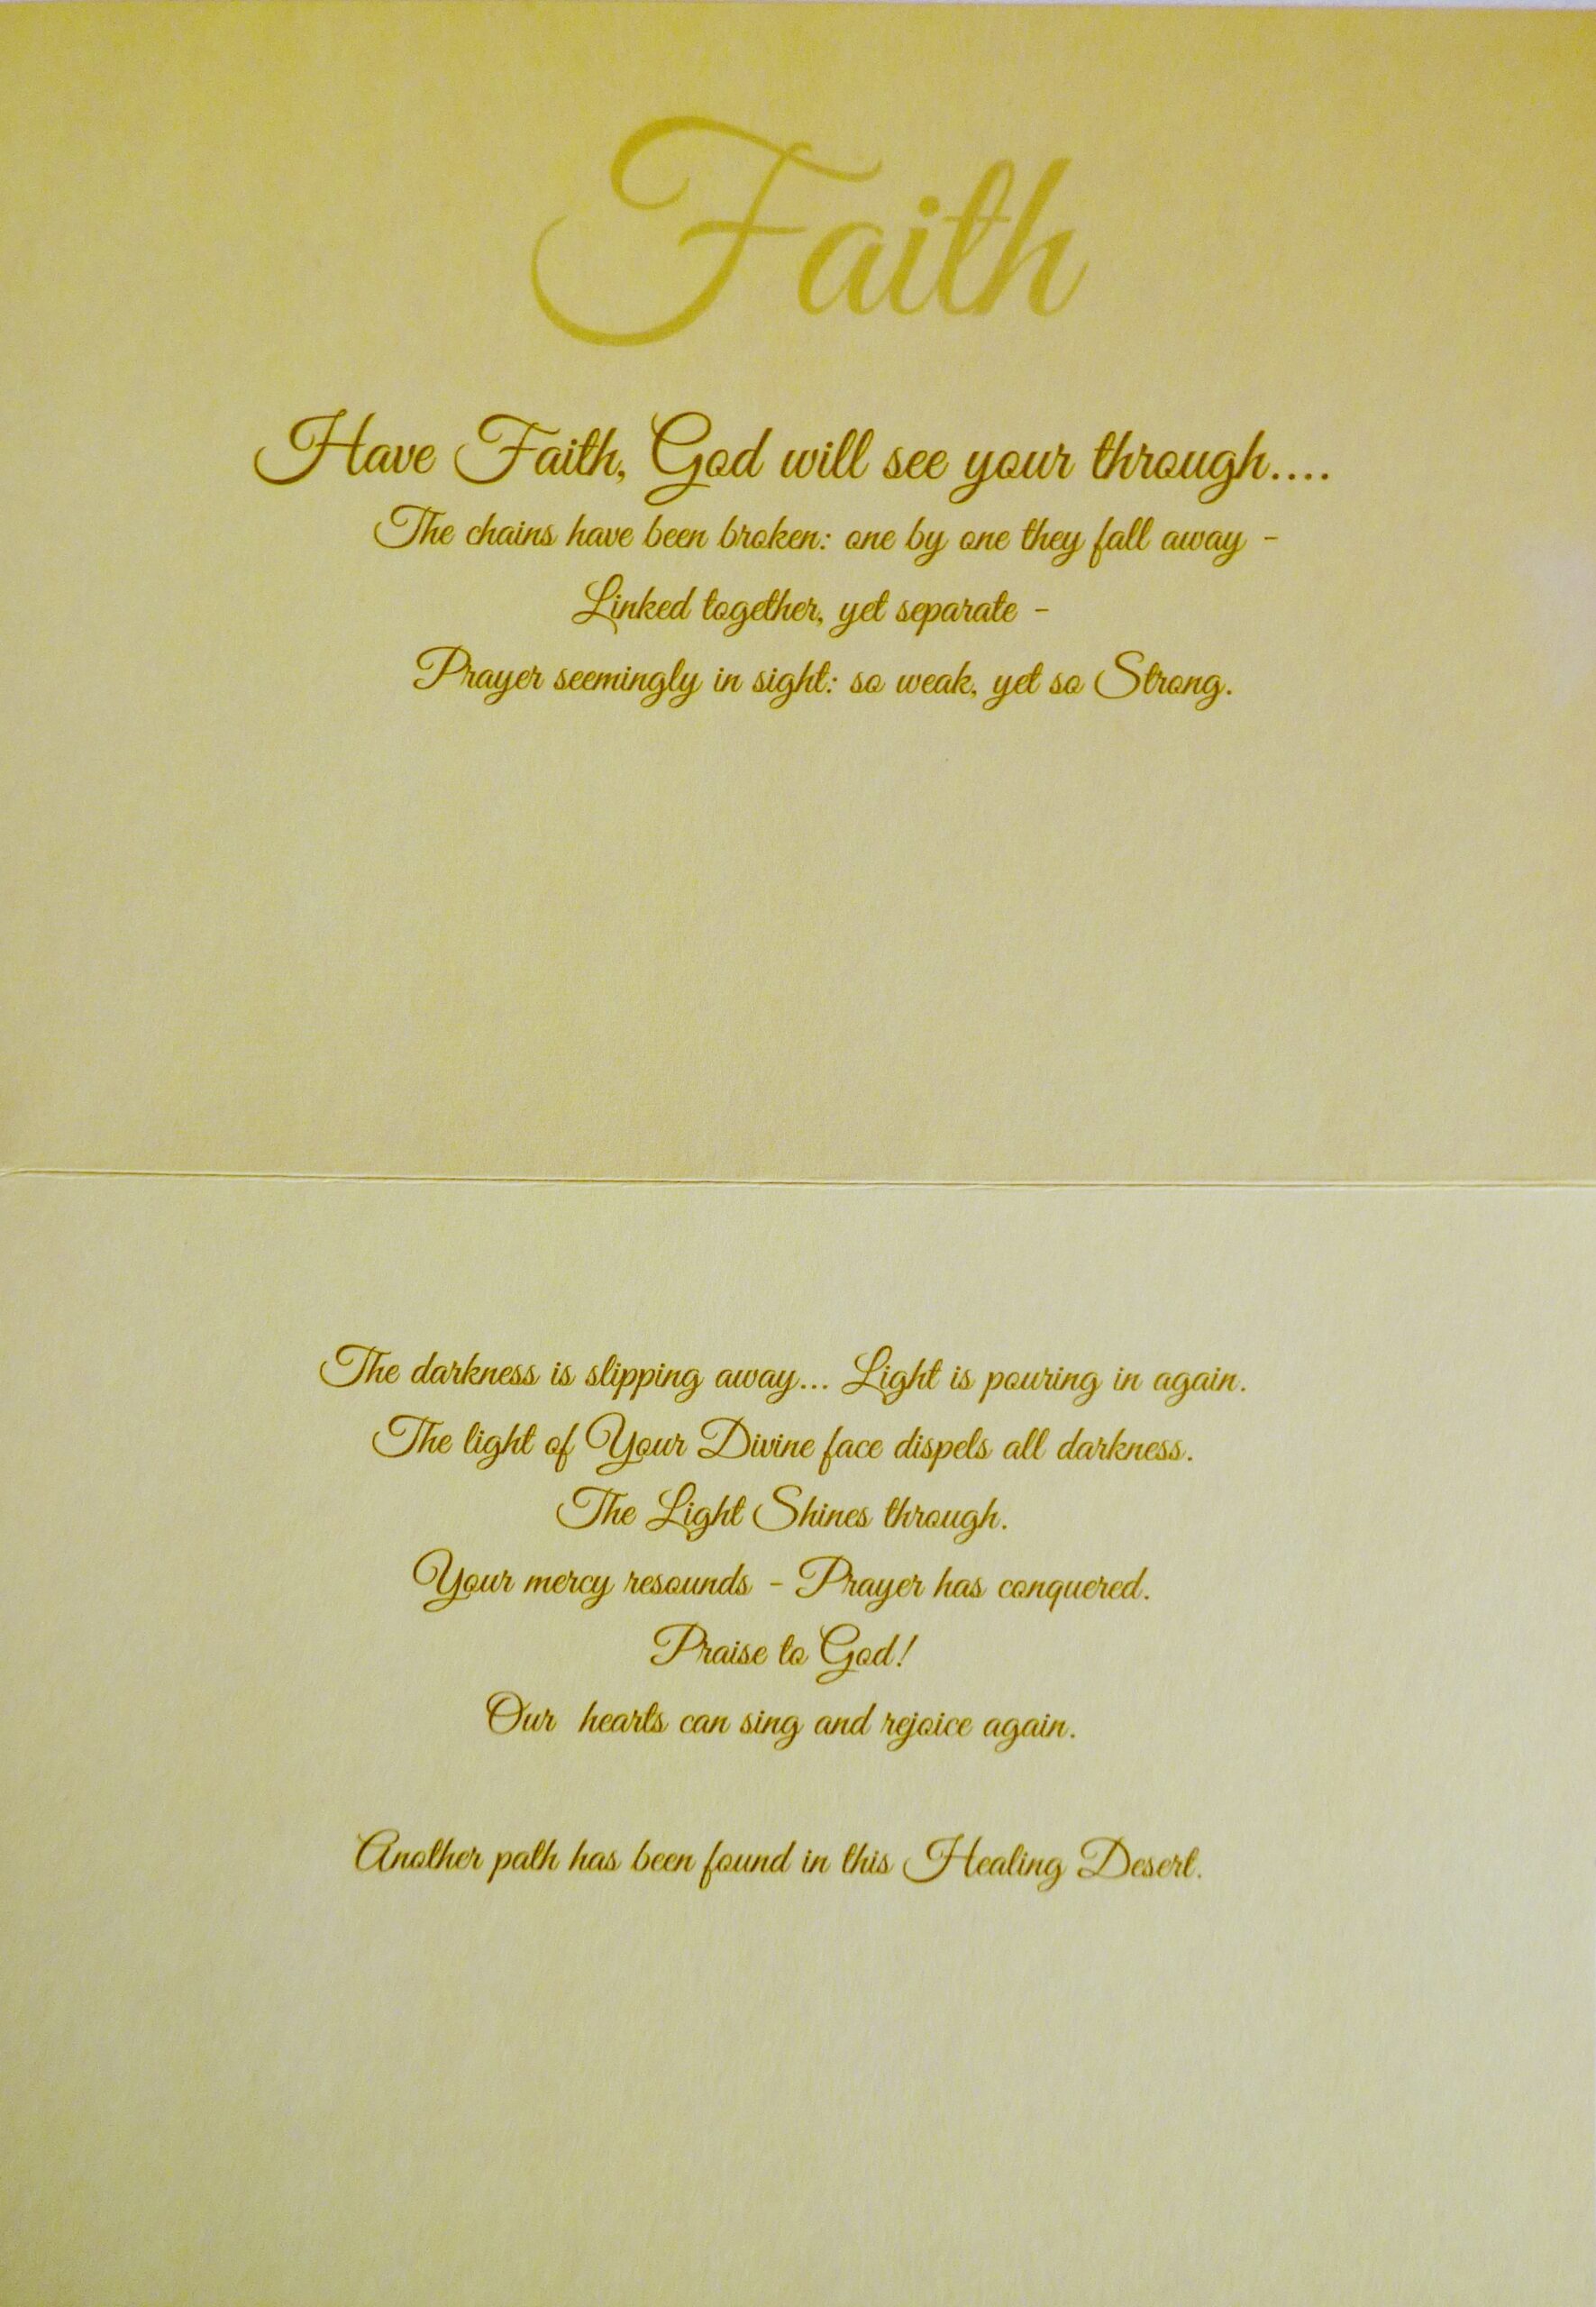 Faith
Have Faith, God will see your through....
The chains have been broken: one by one they fall away -
Linked together, yet separate -
Prayer seemingly in sight: so weak, yet so Strong.
The darkness is slipping away... Light is pouring in again.
The light of Your Divine face dispels all darkness.
The Light Shines through.
Your mercy resounds - Prayer has conquered.
Praise to God!
Our hearts can sing and rejoice again.
Another path has been found in this Healing Desert.